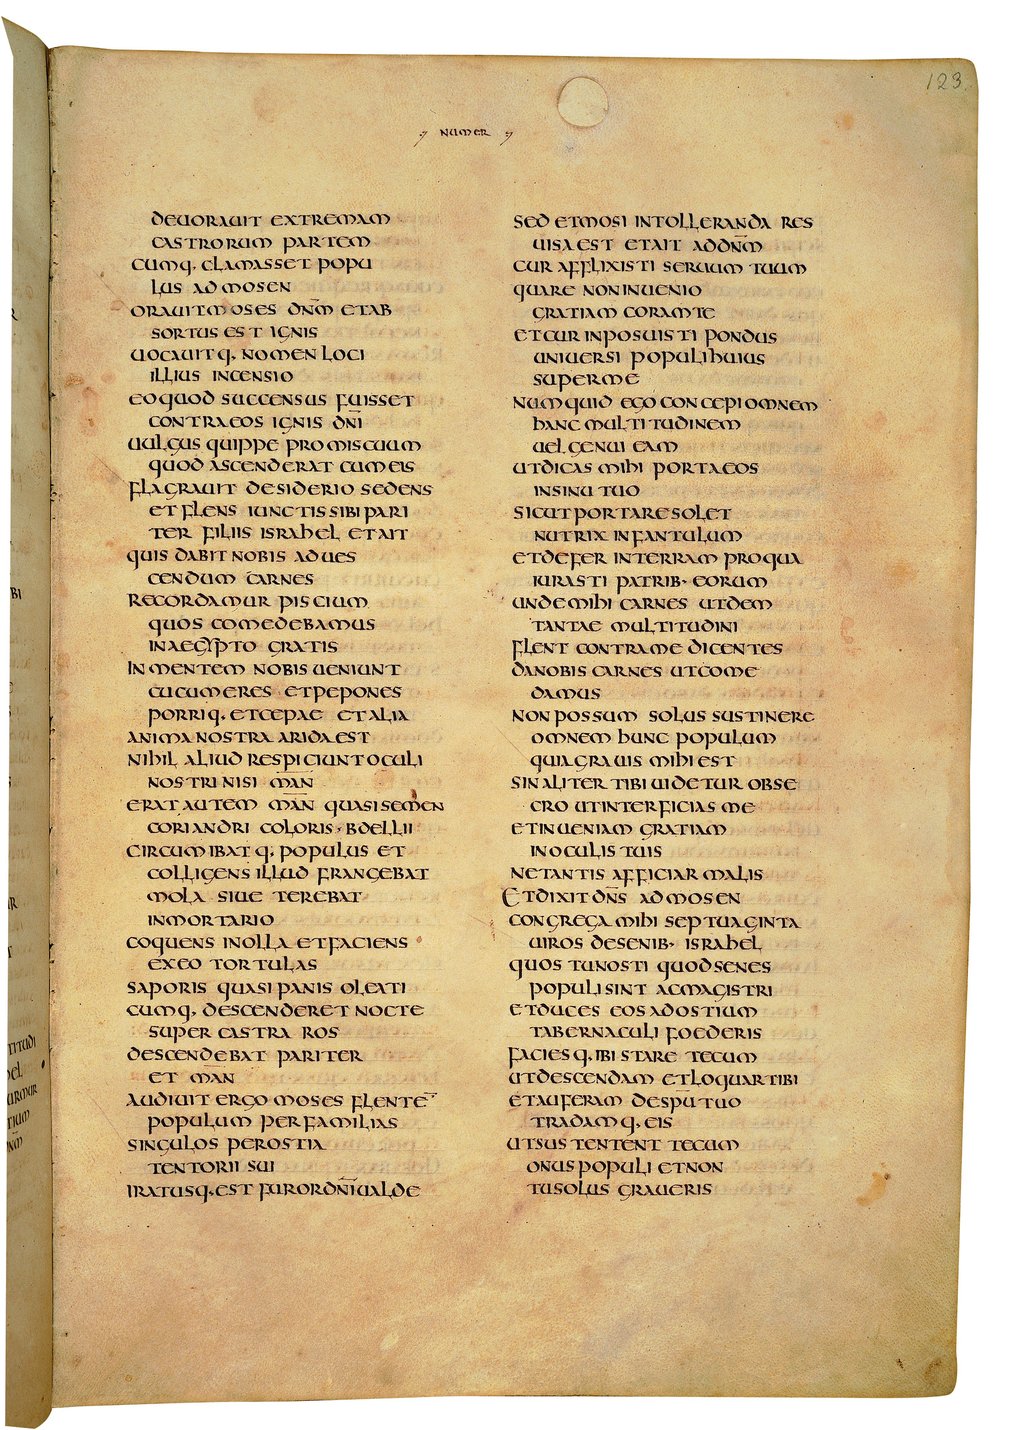 123
NUMER
DEUORAUIT EXTREMAM
CASTRORUM PARTEM
CUMQ· CLAMASSET POPU
LUS AD MOSEN
ORAUIT MOSES DN̅M ET AB
SORTUS EST IGNIS
UOCAUITQ· NOMEN LOCI
ILLIUS INCENSIO
EO QUOD SUCCENSUS FUISSET
CONTRA EOS IGNIS DN̅I
UULGUS QUIPPE PROMISCUUM
QUOD ASCENDERAT CUM EIS
FLAGRAUIT DESIDERIO SEDENS
ET FLENS IUNCTIS SIBI PARI
TER FILIIS ISRAHEL ET AIT
QUIS DABIT NOBIS AD UES
CENDUM CARNES
RECORDAMUR PISCIUM
QUOS COMEDEBAMUS
IN AEGYPTO GRATIS
IN MENTEM NOBIS UENIUNT
CUCUMERES ET PEPONES
PORRIQ· ET CEPAE ET ALIA
ANIMA NOSTRA ARIDA EST
NIHIL ALIUD RESPICIUNT OCULI
NOSTRI NISI MA̅N
ERAT AUTEM MA̅N QUASI SEMEN
CORIANDRI COLORIS· BDELLII
CIRCUMIBATQ· POPULUS ET
COLLIGENS ILLUD FRANGEBAT
MOLA SIUE TEREBAT
IN MORTARIO
COQUENS IN OLLA ET FACIENS
EX EO TORTULAS
SAPORIS QUASI PANIS OLEATI
CUMQ· DESCENDERET NOCTE
SUPER CASTRA ROS
DESCENDEBAT PARITER
ET MA̅N
AUDIUIT ERGO MOSES FLENTE̅
POPULUM PER FAMILIAS
SINGULOS PER OSTIA
TENTORII SUI
IRATUSQ· EST FUROR DN̅I UALDE
SED ET MOSI INTOLLERANDA RES
UISA EST ET AIT AD DN̅M
CUR AFFLIXISTI SERUUM TUUM
QUARE NON INUENIO
GRATIAM CORAM TE
ET CUR INPOSUISTI PONDUS
UNIUERSI POPULI HUIUS
SUPER ME
NUMQUID EGO CONCEPI OMNEM
HANC MULTITUDINEM
UEL GENUI EAM
UT DICAS MIHI PORTA EOS
IN SINU TUO
SICUT PORTARE SOLET
NUTRIX INFANTULUM
ET DEFER IN TERRAM PRO QUA
IURASTI PATRIB· EORUM
UNDE MIHI CARNES UT DEM
TANTAE MULTITUDINI
FLENT CONTRA ME DICENTES
DA NOBIS CARNES UT COME
DAMUS
NON POSSUM SOLUS SUSTINERE
OMNEM HUNC POPULUM
QUIA GRAUIS MIHI EST
SIN ALITER TIBI UIDETUR OBSE
CRO UT INTERFICIAS ME
ET INUENIAM GRATIAM
IN OCULIS TUIS
NE TANTIS AFFICIAR MALIS
ET DIXIT DN̅S AD MOSEN
CONGREGA MIHI SEPTUAGINTA
UIROS DE SENIB· ISRAHEL
QUOS TU NOSTI QUOD SENES
POPULI SINT AC MAGISTRI
ET DUCES EOS AD OSTIUM
TABERNACULI FOEDERIS
FACIESQ· IBI STARE TECUM
UT DESCENDAM ET LOQUAR TIBI
ET AUFERAM DE SPU̅ TUO
TRADAMQ· EIS
UT SUSTENTENT TECUM
ONUS POPULI ET NON
TU SOLUS GRAUERIS